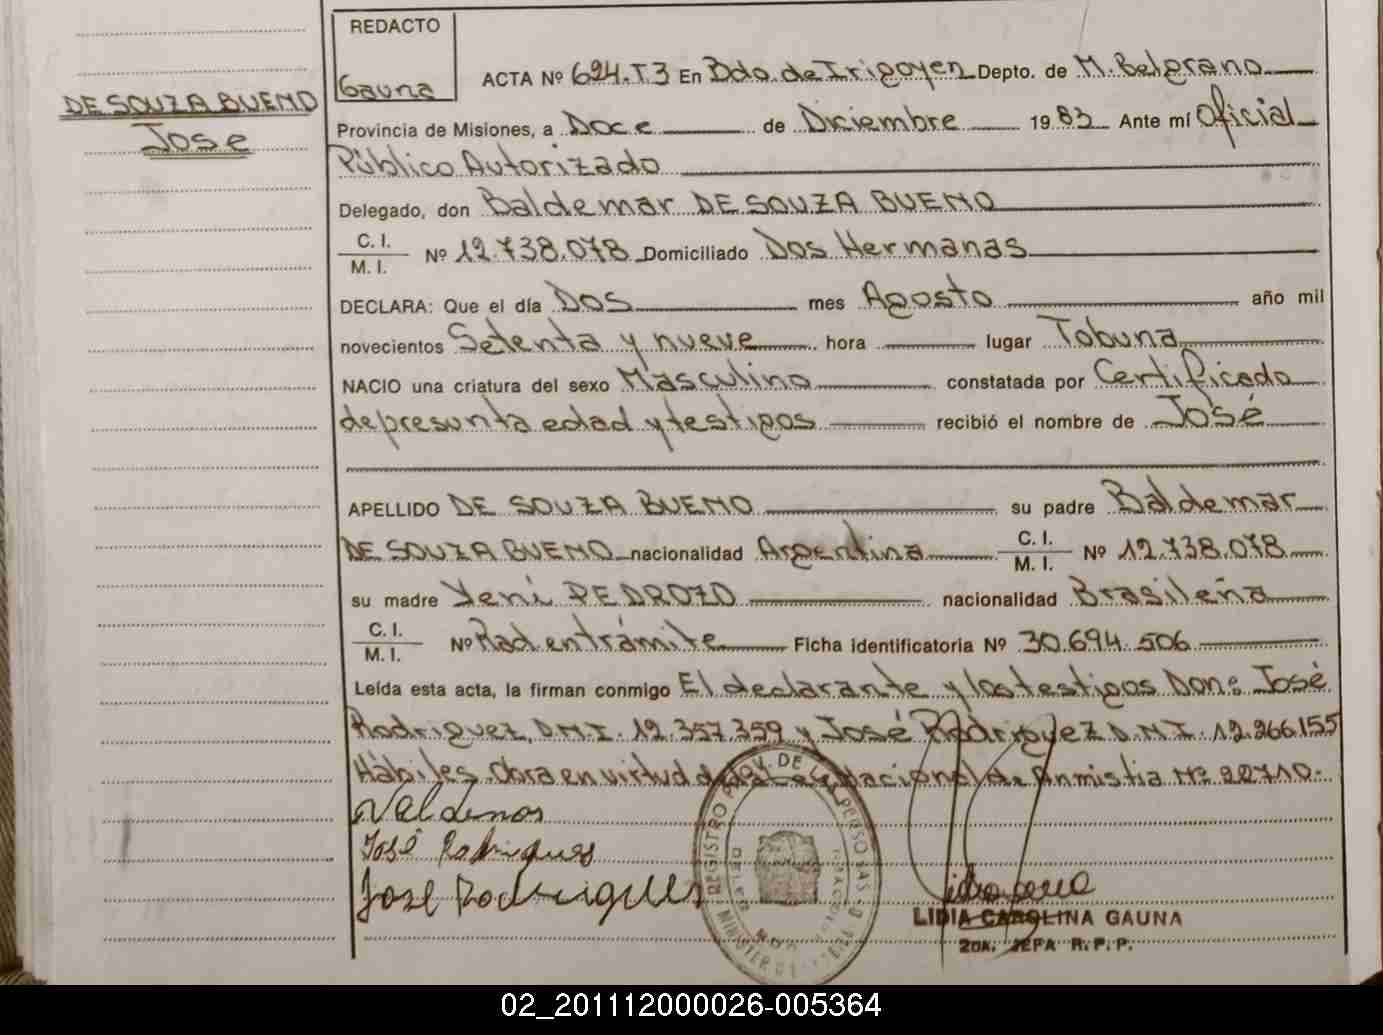 REDACTO
Gauna
DE SOUZA BUENO
Jose
ACTA Nº 694.T3 En Bdo. de Irigoyen Depto. de M. Belgrano
Provincia de Misiones, a Doce de Diciembre 1983 Ante mí Oficial
Público Autorizado
Delegado, don Baldemar DE SOUZA BUENO
C. I.
M. I. Nº 12.738.078 Domiciliado Dos Hermanas
DECLARA: Que el día Dos mes Agosto año mil
novecientos Setenta y nueve hora lugar Tobuna
NACIO una criatura del sexo Masculino constatada por Certificado
de presunta edad y testigos recibió el nombre de José
APELLIDO DE SOUZA BUENO su padre Baldemar
DE SOUZA BUENO nacionalidad Argentina C. I. M. I. Nº 12.738.078
su madre Yení PEDROZO nacionalidad Brasileña
C. I.
M. I. Nº Rad. en trámite Ficha identificatoria Nº 30.694.506
Leída esta acta, la firman conmigo El declarante y los testigos Don: José
Rodriguez, D.N.I. 12.357.359 y José Rodriguez D.N.I. 12.266.155
Hábiles. Obra en virtud de la Ley Nacional de Anmistia Nº 22710.-
José Rodrigues
José Rodrigues
REGISTRO PROV. DE LAS PERSONAS
LIDIA CAROLINA GAUNA
2DA. JEFA R. P. P.
02_201112000026-005364